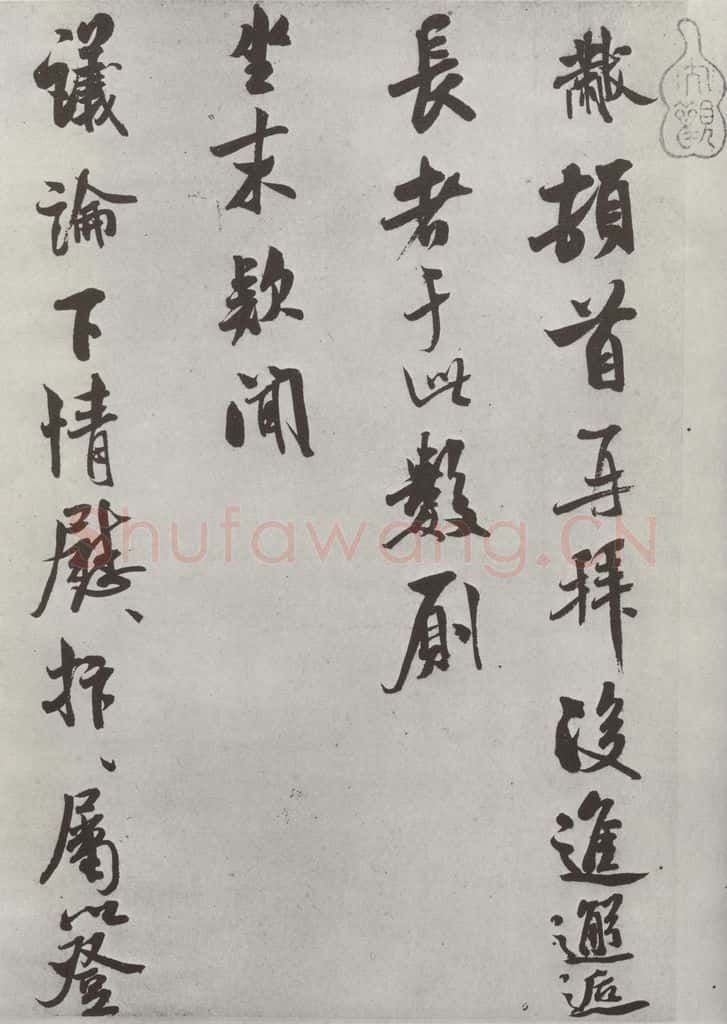 黻頓首再拜後進邂逅
長者于此數廁
坐末款聞
議論下情慰、抃、屬以登
內觀
Shufawang.CN